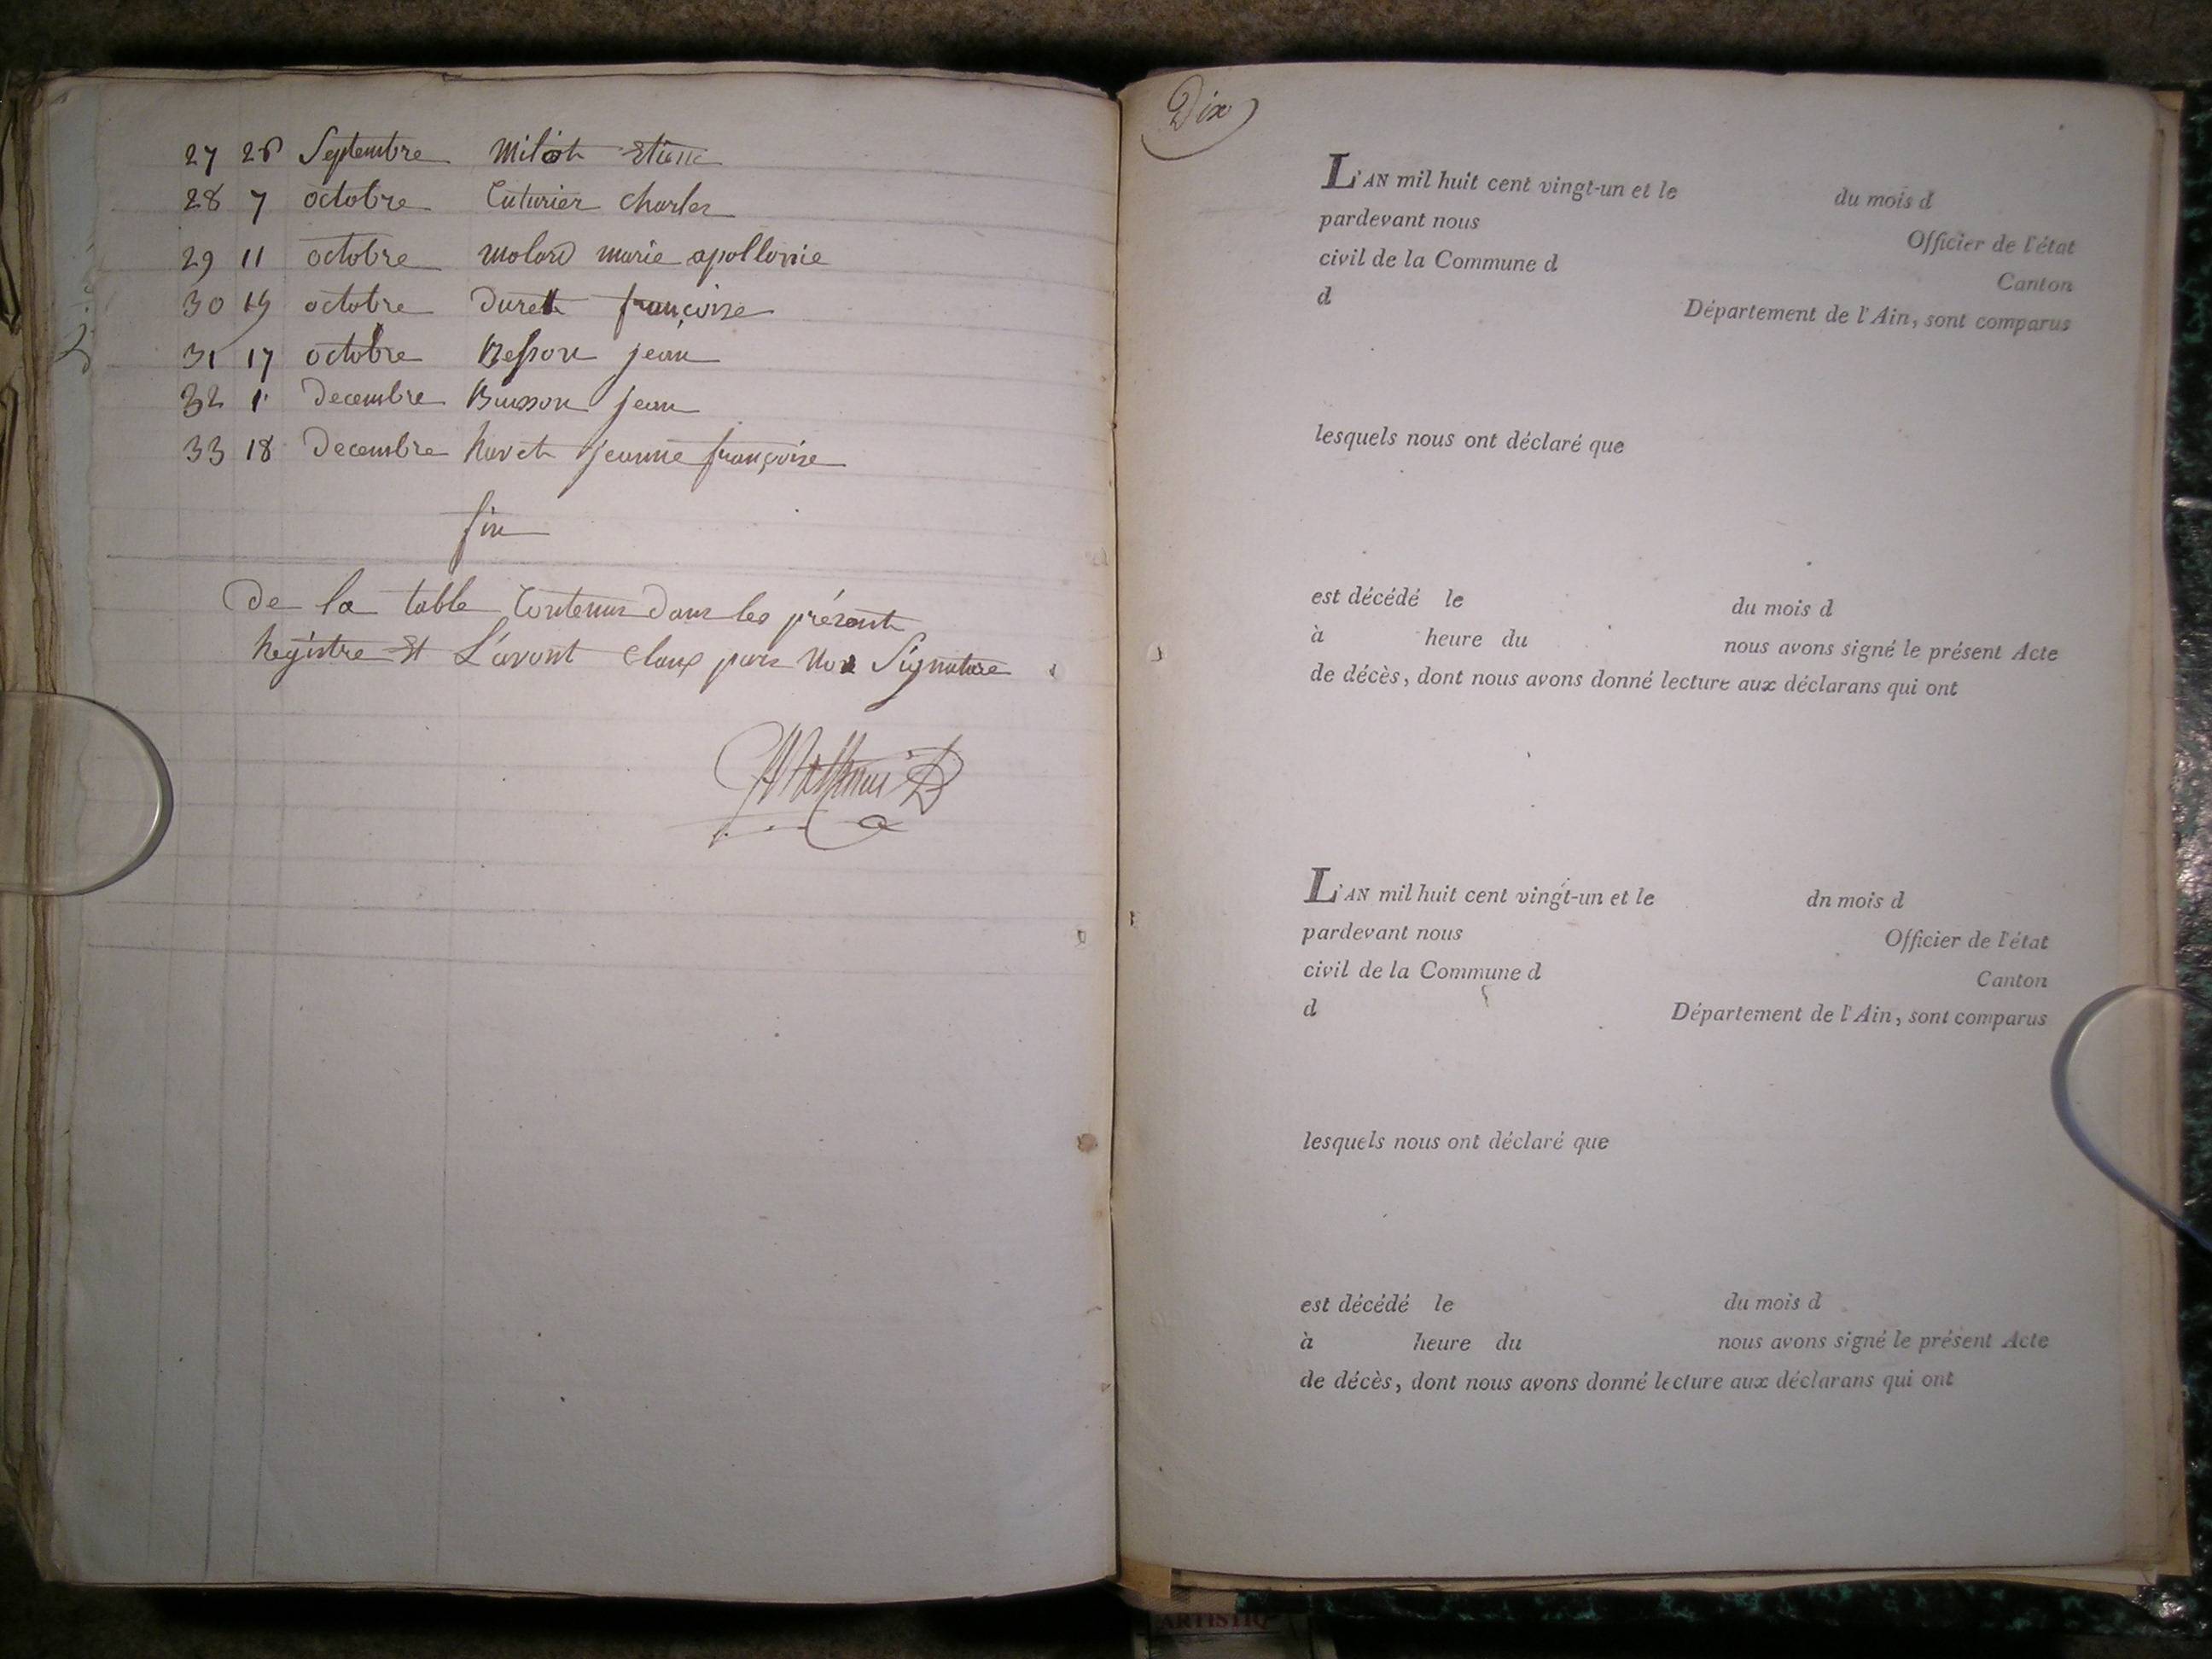 27 26 Septembre Milot Etiene
28 7 octobre Cuturier Charles
29 11 octobre Molard marie apollonie
30 15 octobre Durett françoise
31 17 octobre Besson jean
32 1 Decembre Buisson jean
33 18 Decembre havet jeanne françoise
fin
De la table Contenus Dans les présent
Registre Et L'avont Claux pars Nos Signature
Dix
L'AN mil huit cent vingt-un et le du mois d
pardevant nous Officier de l'état
civil de la Commune d Canton
d Département de l'Ain, sont comparus
lesquels nous ont déclaré que
est décédé le du mois d
à heure du nous avons signé le présent Acte
de décès, dont nous avons donné lecture aux déclarans qui ont
L'AN mil huit cent vingt-un et le dn mois d
pardevant nous Officier de l'état
civil de la Commune d Canton
d Département de l'Ain, sont comparus
lesquels nous ont déclaré que
est décédé le du mois d
à heure du nous avons signé le présent Acte
de décès, dont nous avons donné lecture aux déclarans qui ont
ARTISTIQ